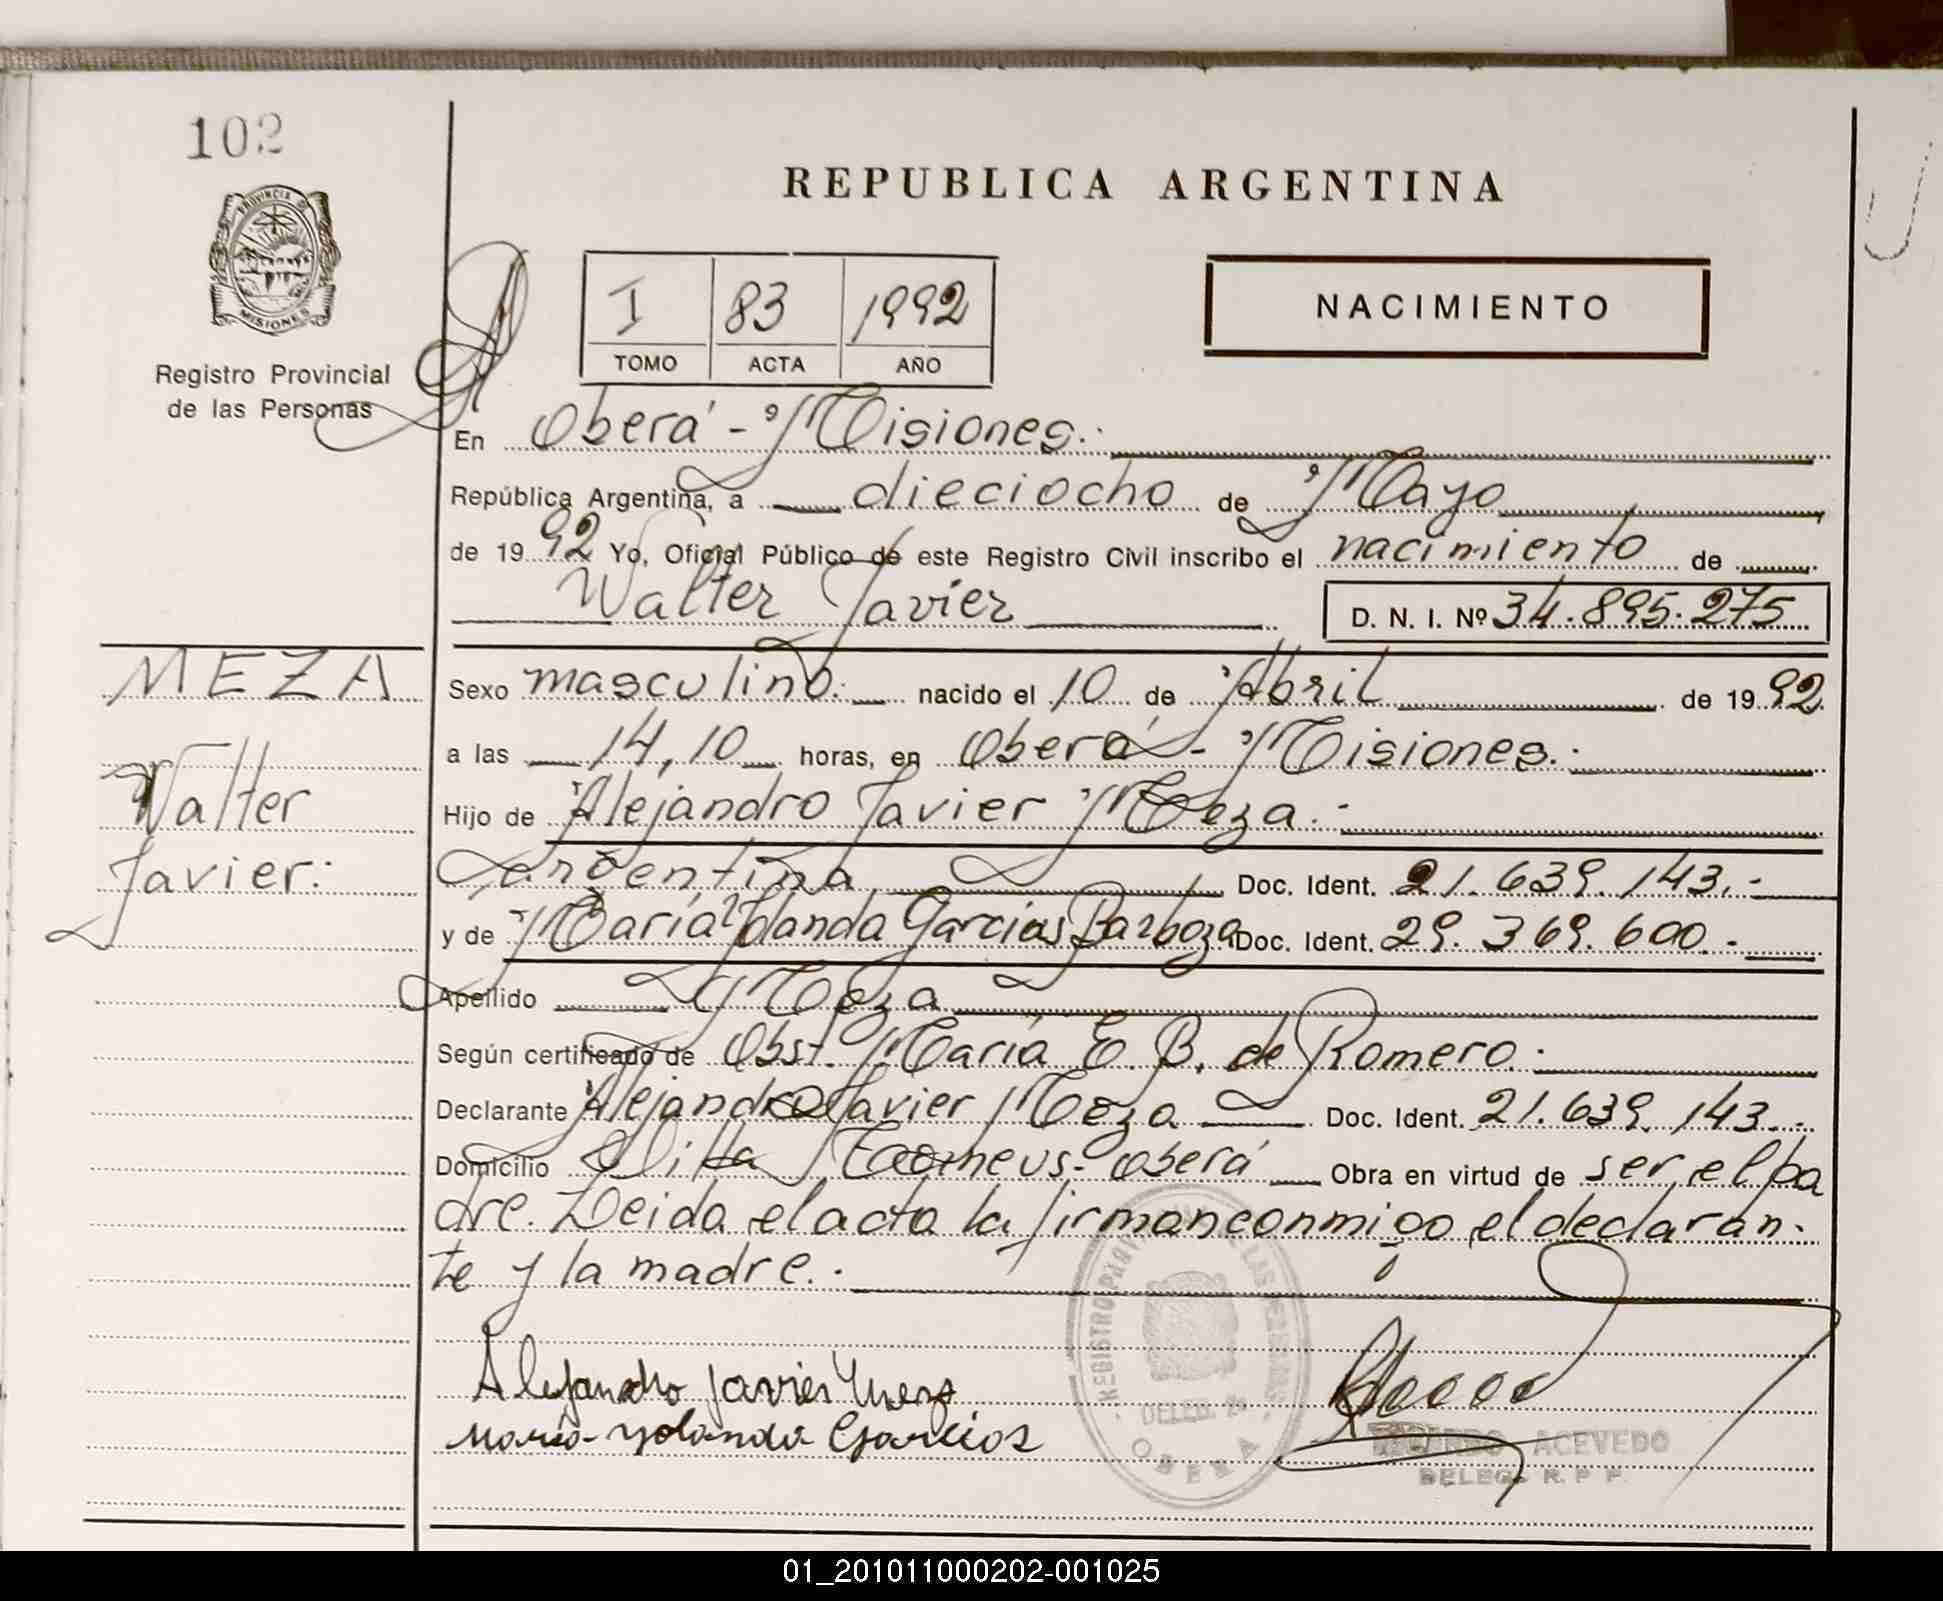 102
REPUBLICA ARGENTINA
PROVINCIA D
MISIONES
Registro Provincial
de las Personas
I 83 1992
TOMO ACTA AÑO
NACIMIENTO
En Oberá - Misiones.-
República Argentina, a dieciocho de Mayo
de 1992 Yo, Oficial Público de este Registro Civil inscribo el nacimiento de
Walter Javier D. N. I. Nº 34.895.275
MEZA
Walter
Javier:
Sexo masculino.- nacido el 10 de Abril de 1992
a las 14,10 horas, en Oberá - Misiones.-
Hijo de Alejandro Javier Meza.-
Argentina Doc. Ident. 21.639.143.-
y de María Yolanda Garcias Barboza Doc. Ident. 29.369.600.-
Apellido Meza
Según certificado de Obst. María E. B. de Romero.-
Declarante Alejandro Javier Meza Doc. Ident. 21.639.143.-
Domicilio Villa - Oberá Obra en virtud de ser el pa
dre. Leida el acta la firman conmigo el declaran-
te y la madre.-
Alejandro Javier Meza
Maria Yolanda Garcias
REGISTRO DE LAS PERSONAS
DELEG.
OBERA
ACEVEDO
DELEG. R. P. P.
01_201011000202-001025